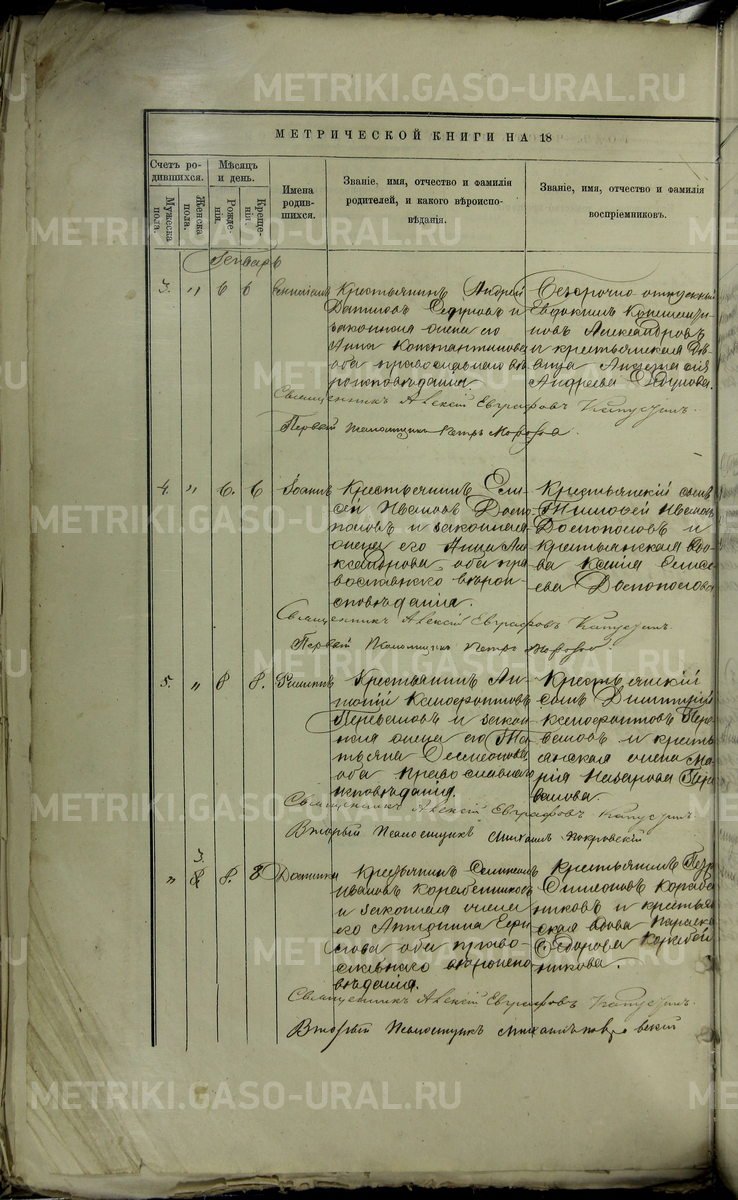 МЕТРИЧЕСКОЙ КНИГИ НА 18
Счетъ ро-
дившихся.
Мужеска
пола.
Женска
пола.
Мѣсяцъ
и день.
Рожде-
нія.
Креще-
нія.
Имена
родив-
шихся.
Званіе, имя, отчество и фамилія
родителей, и какого вѣроиспо-
вѣданія.
Званіе, имя, отчество и фамилія
воспріемниковъ.
Генварь
3. " 6 6
Крестьянинъ Андрей
Даниловъ и
законная жена его
Анна Константинова
оба православнаго вѣ
роисповѣданія.
Безсрочно-отпускный
Евдокимъ
Александровъ
и крестьянская дѣ
вица Анастасія
Андреева
Священникъ Алексій Евграфовъ Капустинъ.
Первый Псаломщикъ Петръ Морозов.
4. " 6. 6 Іоаннъ
Крестьянинъ Ели
сей Ивановъ Доспо
половъ и законная
жена его Анна Але
ксандрова, оба пра
вославнаго вѣрои
сповѣданія.
Крестьянскій сынъ
Тимофей Ивановъ
и
крестьянская вдо
ва Ксенія Елисе
ева
Священникъ Алексій Евграфовъ Капустинъ.
Первый Псаломщикъ Петръ Морозов.
5. " 8 8. Филиппъ
Крестьянинъ Ан
тоній Ксенофонтовъ
Переваловъ и закон
ная жена его Та
тьяна Семенова
оба православнаго
исповѣданія.
Крестьянскій
сынъ Димитрій
Ксенофонтовъ Пере
валовъ и кресть
янская жена Ма
рія Назарова Пере
валова.
Священникъ Алексій Евграфовъ Капустинъ
Вторый Псаломщикъ Михаилъ Покровскій
" 3. 8. 8 Домника
Крестьянинъ
Ивановъ Коробейниковъ
и законная жена
его Антонина
оба право
славнаго вѣроиспо
вѣданія.
Крестьянинъ Петръ
Симеоновъ Коробей
никовъ и крестьян
ская вдова Параскева
Федорова Коробей
никова.
Священникъ Алексій Евграфовъ Капустинъ.
Вторый Псаломщикъ Михаилъ Покровскій
METRIKI.GASO-URAL.RU